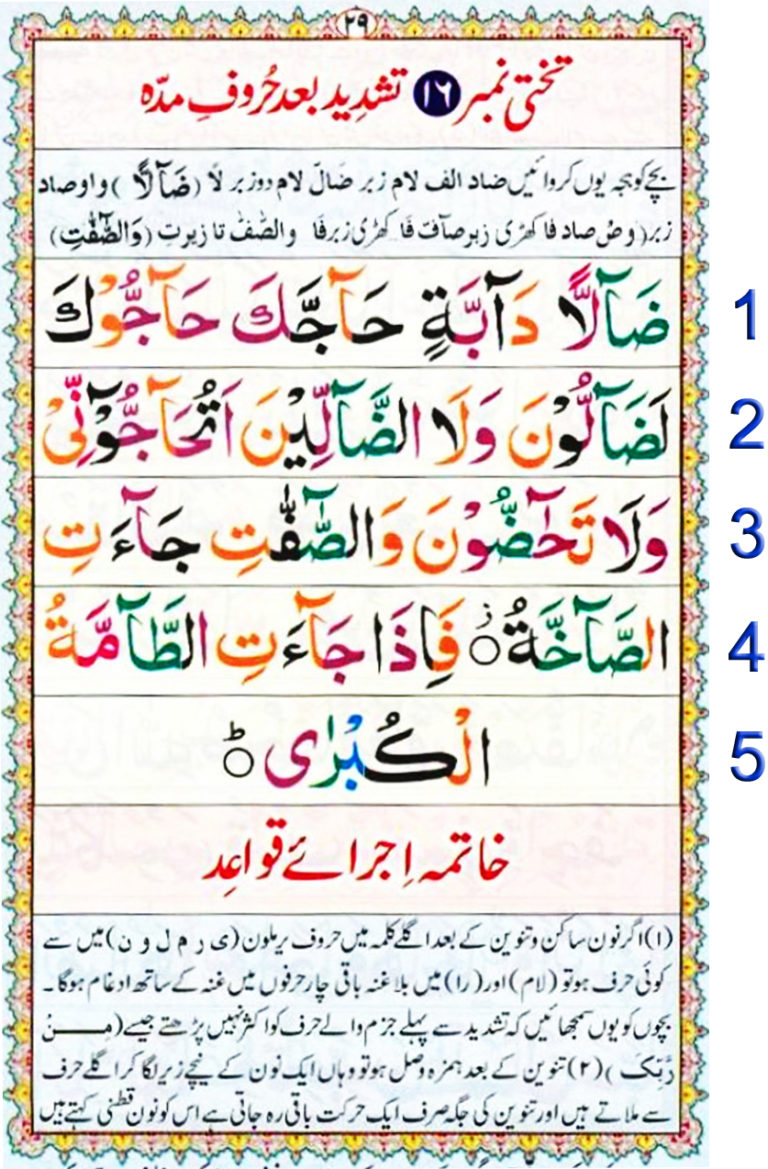 ۲۹
تختی نمبر ۱۶ تشدید بعد حُروفِ مدّہ
بچے کو ہجہ یوں کروائیں ضاد الف لام زبر ضَالّ لام دوزبر لًا (ضَآلًّا) واو صاد
زبر (وصْ صاد فا کھڑی زبر صآفّ فَا کھڑی زبر فَا والصّٰفّٰ تا زیر تِ (وَالصّٰٓفّٰتِ)
ضَآلًّا دَآبَّةٍ حَآجَّكَ حَآجُّوْكَ 1
لَضَآلُّوْنَ وَلَا الضَّآلِّيْنَ اَتُحَآجُّوْٓنِّيْ 2
وَلَا تَحٰٓضُّوْنَ وَالصّٰٓفّٰتِ جَآءَتِ 3
الصَّآخَّةُ ۚ فَاِذَا جَآءَتِ الطَّآمَّةُ 4
الْكُبْرٰى ؕ 5
خاتمہ اِجرائے قواعِد
(۱) اگر نون ساکن و تنوین کے بعد اگلے کلمہ میں حروف یرملون (ی ر م ل و ن) میں سے
کوئی حرف ہو تو (لام) اور (را) میں بلاغنہ باقی چار حرفوں میں غنہ کے ساتھ ادغام ہوگا۔
بچوں کو یوں سمجھائیں کہ تشدید سے پہلے جزم والے حرف کو اکثر نہیں پڑھتے جیسے (مِنْ
رَّبِّكَ) (۲) تنوین کے بعد ہمزہ وصل ہو تو وہاں ایک نون کے نیچے زیر لگا کر اگلے حرف
سے ملاتے ہیں اور تنوین کی جگہ صرف ایک حرکت باقی رہ جاتی ہے اس کو نون قطنی کہتے ہیں